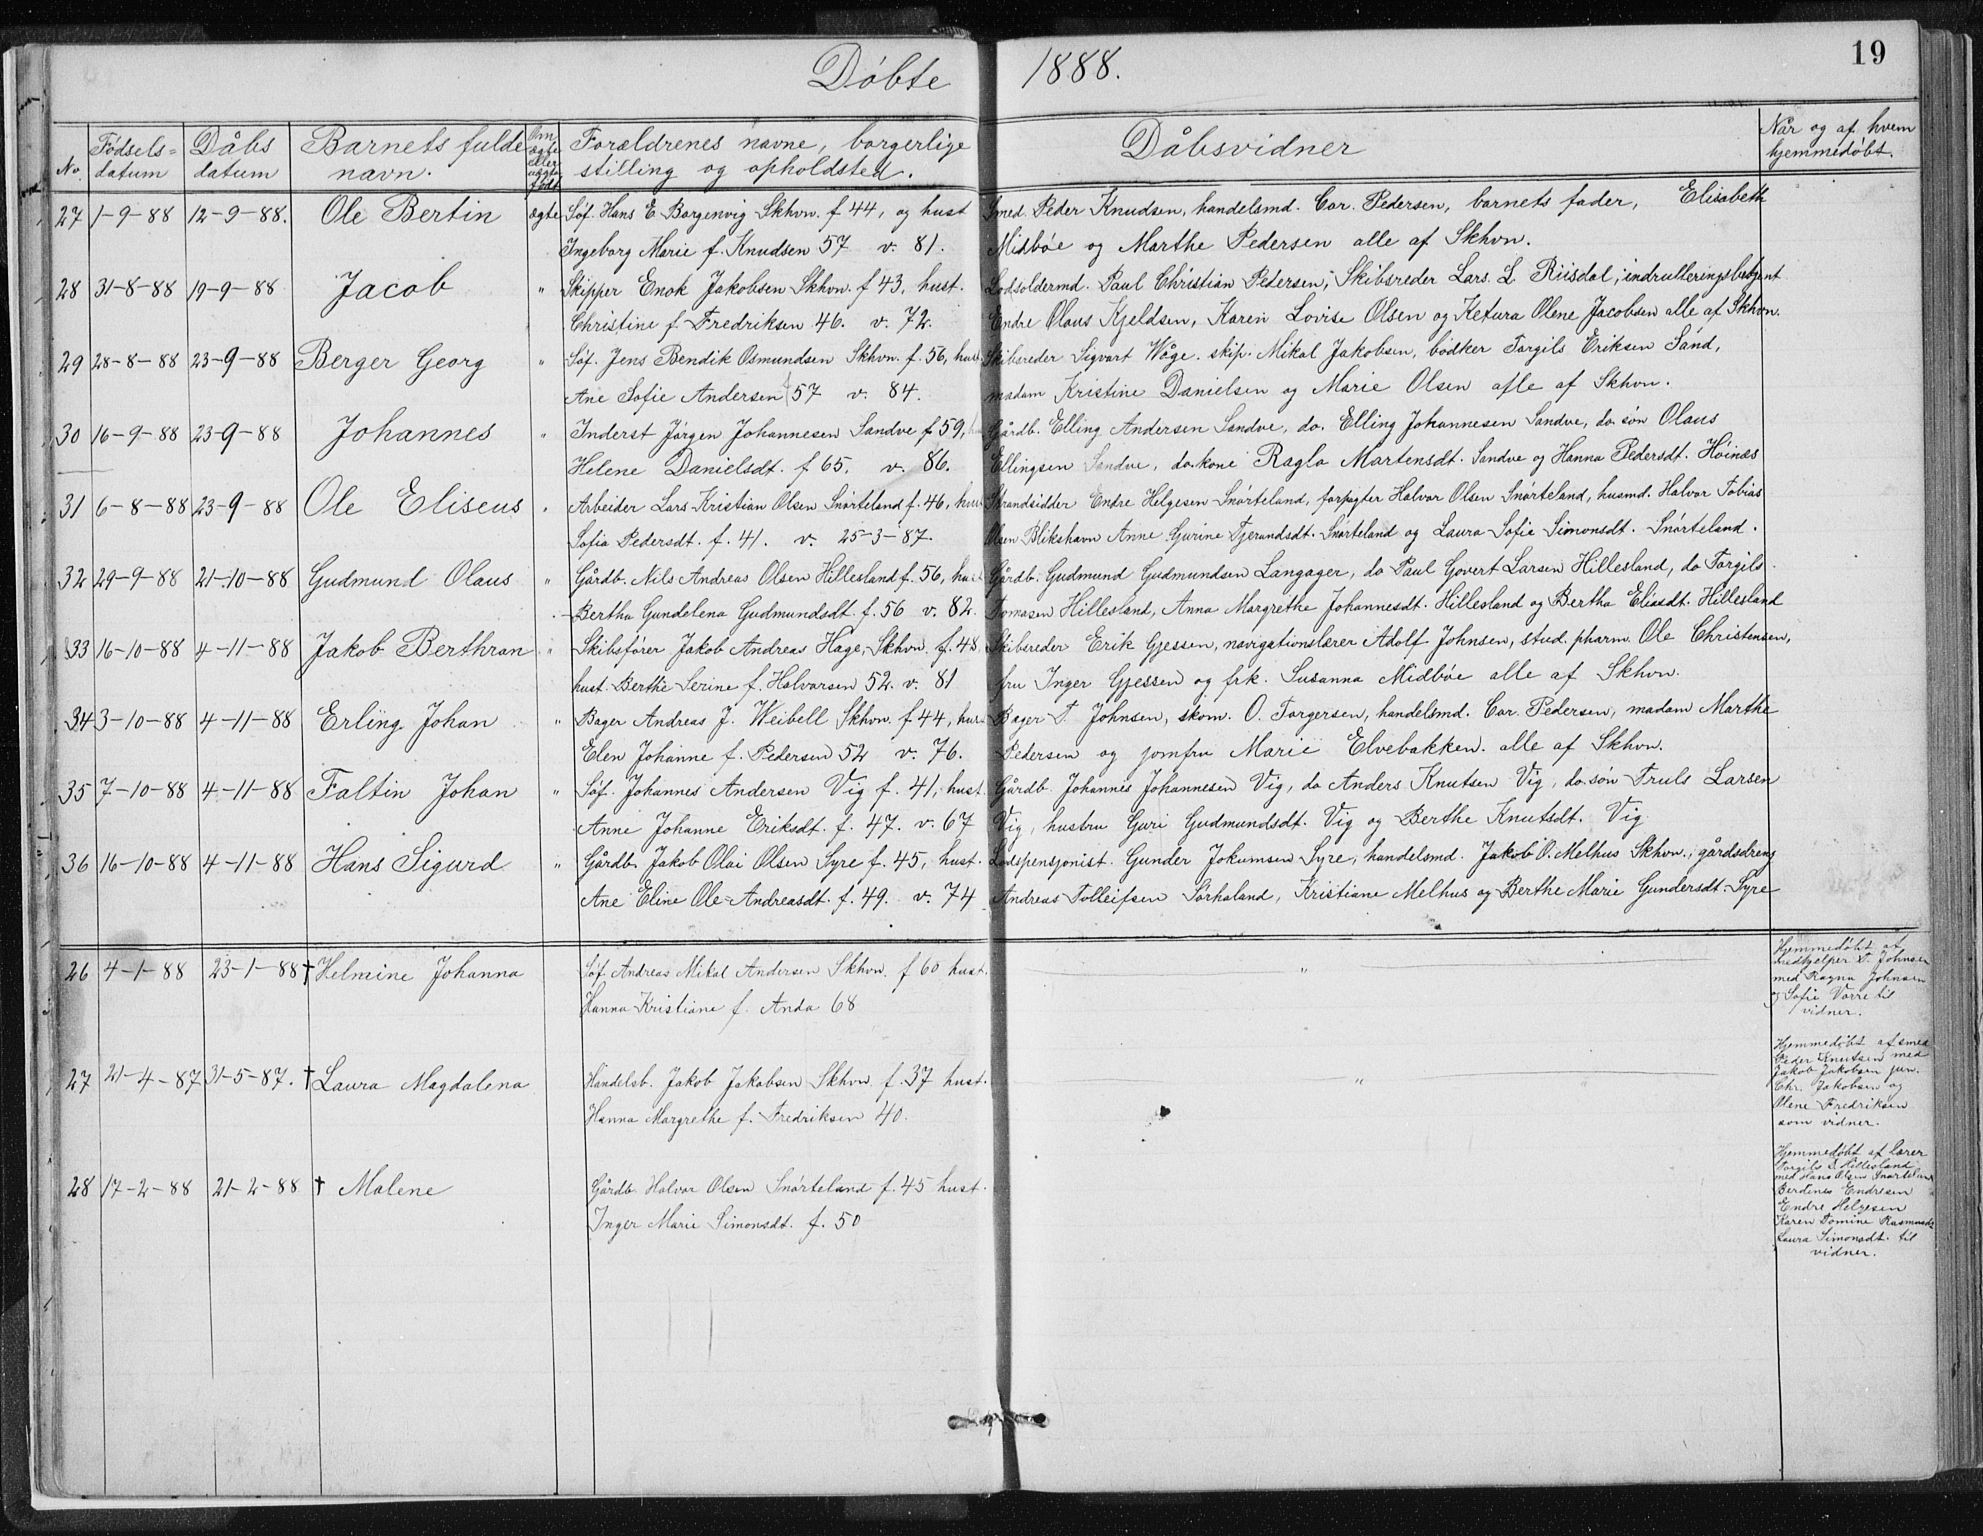 Döbte 1888. 19
No. Fødsels= datum Dåbs datum Barnets fulde navn. Om ægte eller uægte født Forældrenes navne, borgerlige stilling og opholdsted. Dåbsvidner Når og af hvem hjemmedøbt.
27 1-9-88 12-9-88. Ole Bertin ægte Søf. Hans E. Borgenvig Skhvn. f 44, og hust Smed. Peder Knudsen, handelsmd. Cor. Pedersen, barnets fader, Elisabeth
Ingeborg Marie f. Knudsen 57 v. 81. Midbøe og Marthe Pedersen alle af Skhvn.
28 31-8-88 19-9-88 Jacob " Skipper Enok Jakobsen Skhvn. f 43, hust. Lodsoldermd. Paul Christian Pedersen, Skibsreder Lars. L. Riisdal, indrulleringsbetjent
Christine f. Fredriksen 46. v. 72. Endre Olaus Kjeldsen, Karen Lovise Olsen og Ketura Olene Jacobsen alle af Skhvn.
29 28-8-88 23-9-88 Berger Georg " Søf. Jens Bendik Osmundsen Skhvn. f. 56, hust Skibsreder Sigvart Wåge. skip. Mikal Jakobsen, bødker Torgils Eriksen Sand,
Ane Sofie Andersen 57 v. 84. madam Kristine Danielsen og Marie Olsen alle af Skhvn.
30 16-9-88 23-9-88 Johannes " Inderst Jørgen Johannesen Sandve f 59, Gårdb. Elling Andersen Sandve, do. Elling Johannesen Sandve, do. søn Olaus
Helene Danielsdt. f 65. v. 86. Ellingsen Sandve, do. kone Ragla Martensdt. Sandve og Hanna Pedersdt. Høinæs
31 6-8-88 23-9-88 Ole Eliseus " Arbeider Lars Kristian Olsen Snørteland f. 46, hust Strandsidder Endre Helgesen Snørteland, forpagter Halvor Olsen Snørteland, husmd. Halvor Tobias
Sofia Pedersdt. f. 41. v. 25-3-87. Olsen Blikshavn Anne Gurine Tjerandsdt. Snørteland og Laura Sofie Simonsdt. Snørteland.
32 29-9-88 21-10-88 Gudmund Olaus " Gårdb. Nils Andreas Olsen Hillesland f. 56, hust Gårdb. Gudmund Gudmundsen Langager, do Paul Govert Larsen Hillesland, do Torgils
Bertha Gundelena Gudmundsdt. f. 56 v. 82. Tomasen Hillesland, Anna Margrethe Johannesdt. Hillesland og Bertha Eliasdt. Hillesland
33 16-10-88 4-11-88 Jakob Berthran " Skibsfører Jakob Andreas Hage, Skhvn. f. 48, Skibsreder Erik Gjessen, navigationslærer Adolf Johnsen, stud. pharm. Ole Christensen,
hust. Berthe Serine f. Halvorsen 52. v. 81 fru Inger Gjessen og frk. Susanna Midbøe alle af Skhvn.
34 3-10-88 4-11-88 Erling Johan " Bager Andreas J. Weibell Skhvn. f 44, hust. Bager T. Johnsen, skom. O. Torgersen, handelsmd. Cor. Pedersen, madam Marthe
Elen Johanne f. Pedersen 52 v. 76. Pedersen og jomfru Marie Elvebakken. alle af Skhvn.
35 7-10-88 4-11-88 Faltin Johan " Søf. Johannes Andersen Vig f. 41, hust. Gårdb. Johannes Johannesen Vig, do Anders Knutsen Vig, do. søn Truls Larsen
Anne Johanne Eriksdt. f. 47. v. 67 Vig, hustru Guri Gudmundsdt. Vig og Berthe Knutsdt. Vig
36 16-10-88 4-11-88 Hans Sigurd " Gårdb. Jakob Olai Olsen Syre f. 45, hust. Lodspensjonist. Gunder Jokumsen Syre, handelsmd. Jakob O. Melhus Skhvn., gårdsdreng
Ane Eline Ole-Andreasdt. f. 49. v. 74 Andreas Tolleifsen Sørhaland, Kristiane Melhus og Berthe Marie Gundersdt. Syre
26 4-1-88 23-1-88 † Helmine Johanna Søf. Andreas Mikal Andersen Skhvn. f 60 hust. "
Hanna Kristiane f. Anda 68
Hjemmedøbt af
medhjelper T. Johnsen
med Ragna Johnsen
og Sofie Vorre til
vidner.
27 21-4-87 31-5-87. † Laura Magdalena Handelsb. Jakob Jakobsen Skhvn. f. 37 hust. "
Hanna Margrethe f. Fredriksen 40.
Hjemmedøbt af smed
Peder Knutsen med
Jakob Jakobsen jun.
Chr. Jakobsen og
Olene Fredriksen
som vidner.
28 17-2-88 21-2-88 † Malene Gårdb. Halvor Olsen Snørteland f. 45 hust.
Inger Marie Simonsdt. f. 50
Hjemmedøbt af lærer
Torgils T. Hillesland
med Hans Olsen Snørteland
Berdines Endresen
Endre Helgesen
Karen Tomine Rasmusdt
Laura Simonsdt. til
vidner.